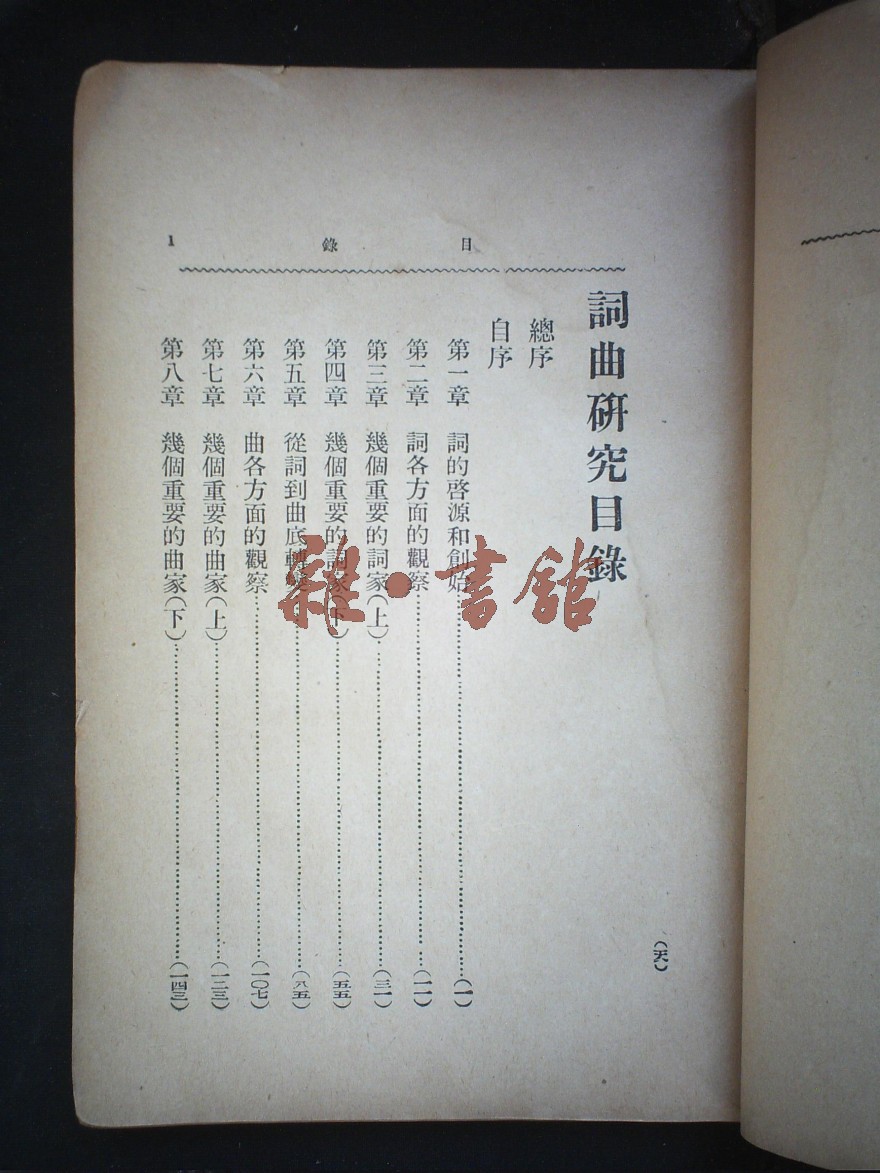 目錄
1
詞曲研究目錄
總序
自序
第一章 詞的啓源和創始(一)
第二章 詞各方面的觀察(一一)
第三章 幾個重要的詞家(上)(三一)
第四章 幾個重要的詞家(下)(五五)
第五章 從詞到曲底轉變(八五)
第六章 曲各方面的觀察(一〇七)
第七章 幾個重要的曲家(上)(一二三)
第八章 幾個重要的曲家(下)(一四三)
雜·書館